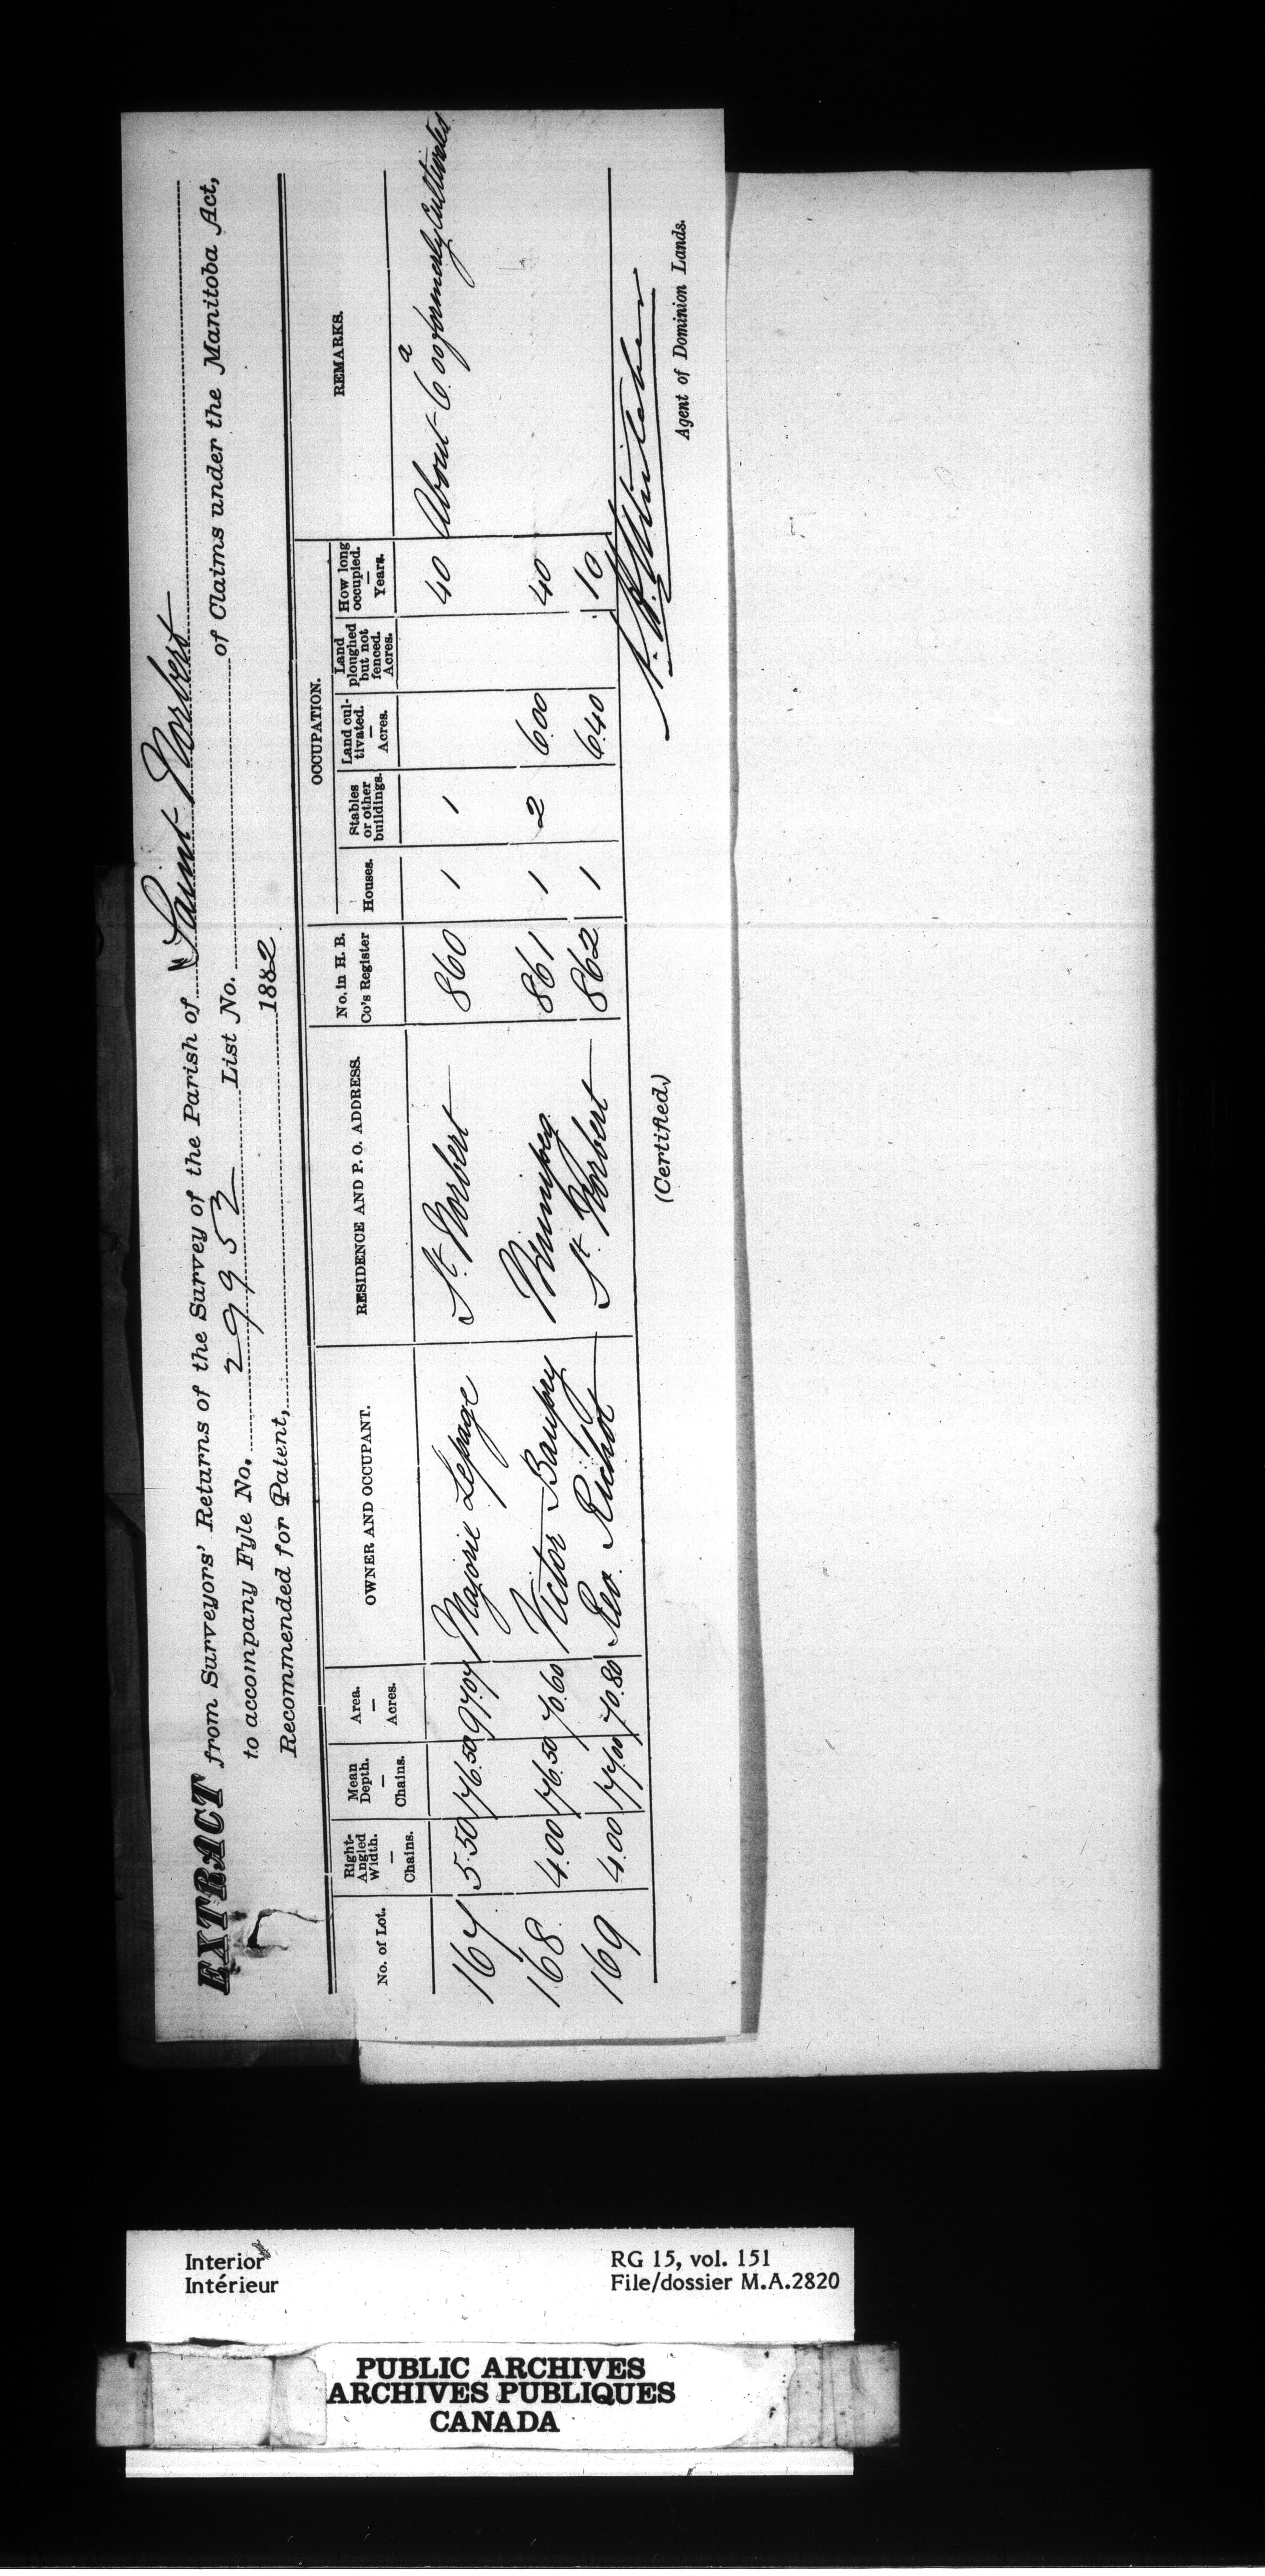 EXTRACT from Surveyors' Returns of the Survey of the Parish of Saint Norbert
to accompany Fyle No. 29952 List No. of Claims under the Manitoba Act,
Recommended for Patent, 1882
No. of Lot.
Right-Angled Width. — Chains.
Mean Depth. — Chains.
Area. — Acres.
OWNER AND OCCUPANT.
RESIDENCE AND P. O. ADDRESS.
No. in H. B. Co's Register
OCCUPATION.
Houses.
Stables or other buildings.
Land cultivated. — Acres.
Land ploughed but not fenced. Acres.
How long occupied. — Years.
REMARKS.
167 5.50 176.50 97.07 Majorie Lepage St. Norbert 860 1 1 40 About 6.00 a formerly Cultivated
168 4.00 176.50 70.60 Victor Winnipeg 861 1 2 6.00 40
169 4.00 177.00 70.80 Rev. Richot St. Norbert 862 1 6.40 10
(Certified,)
Agent of Dominion Lands.
Interior
Intérieur
RG 15, vol. 151
File/dossier M.A.2820
PUBLIC ARCHIVES
ARCHIVES PUBLIQUES
CANADA